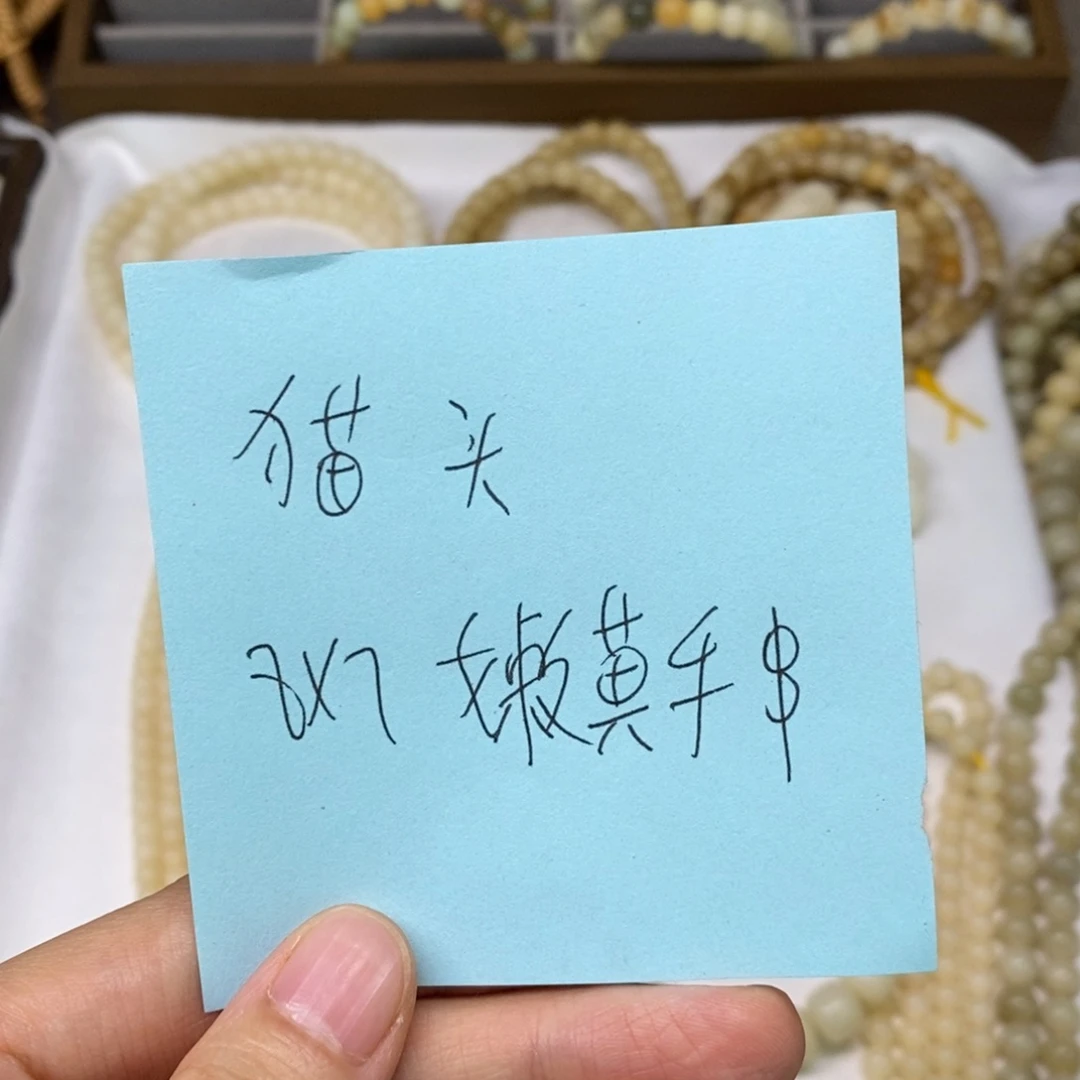 猫头
8X7 嫩黄手串